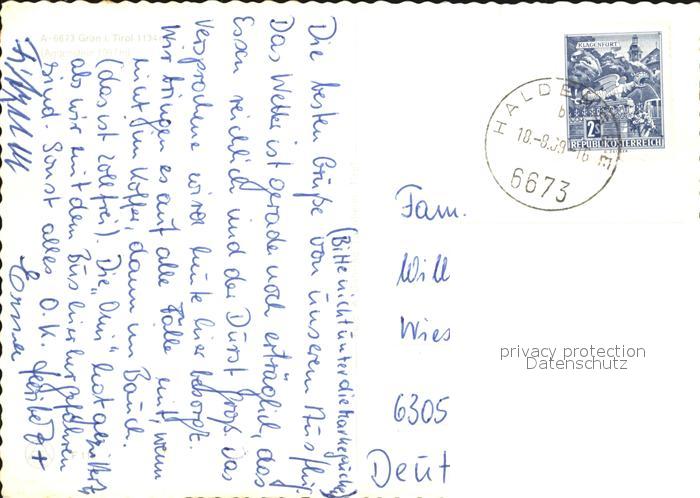 A-6673 Grän i. Tirol 1134 m
(Bitte nicht unter die Marke gucken)
Die besten Grüße von unserem Ausflug.
Das Wetter ist gerade noch erträglich, das
Essen reichlich und der Durst groß. Das
Versprochene wird heute hier besorgt.
Wir bringen es auf alle Fälle mit, wenn
nicht im Koffer, dann im Bauch.
(das ist zollfrei). Die "Omi" hat gezittert,
als wir mit dem Bus hier hergefahren
sind. Sonst alles O.K.
KLAGENFURT
2S
REPUBLIK ÖSTERREICH
HALDE
18.-8.69-16
6673
Fam.
Will
Wies
6305
Deut
privacy protection
Datenschutz